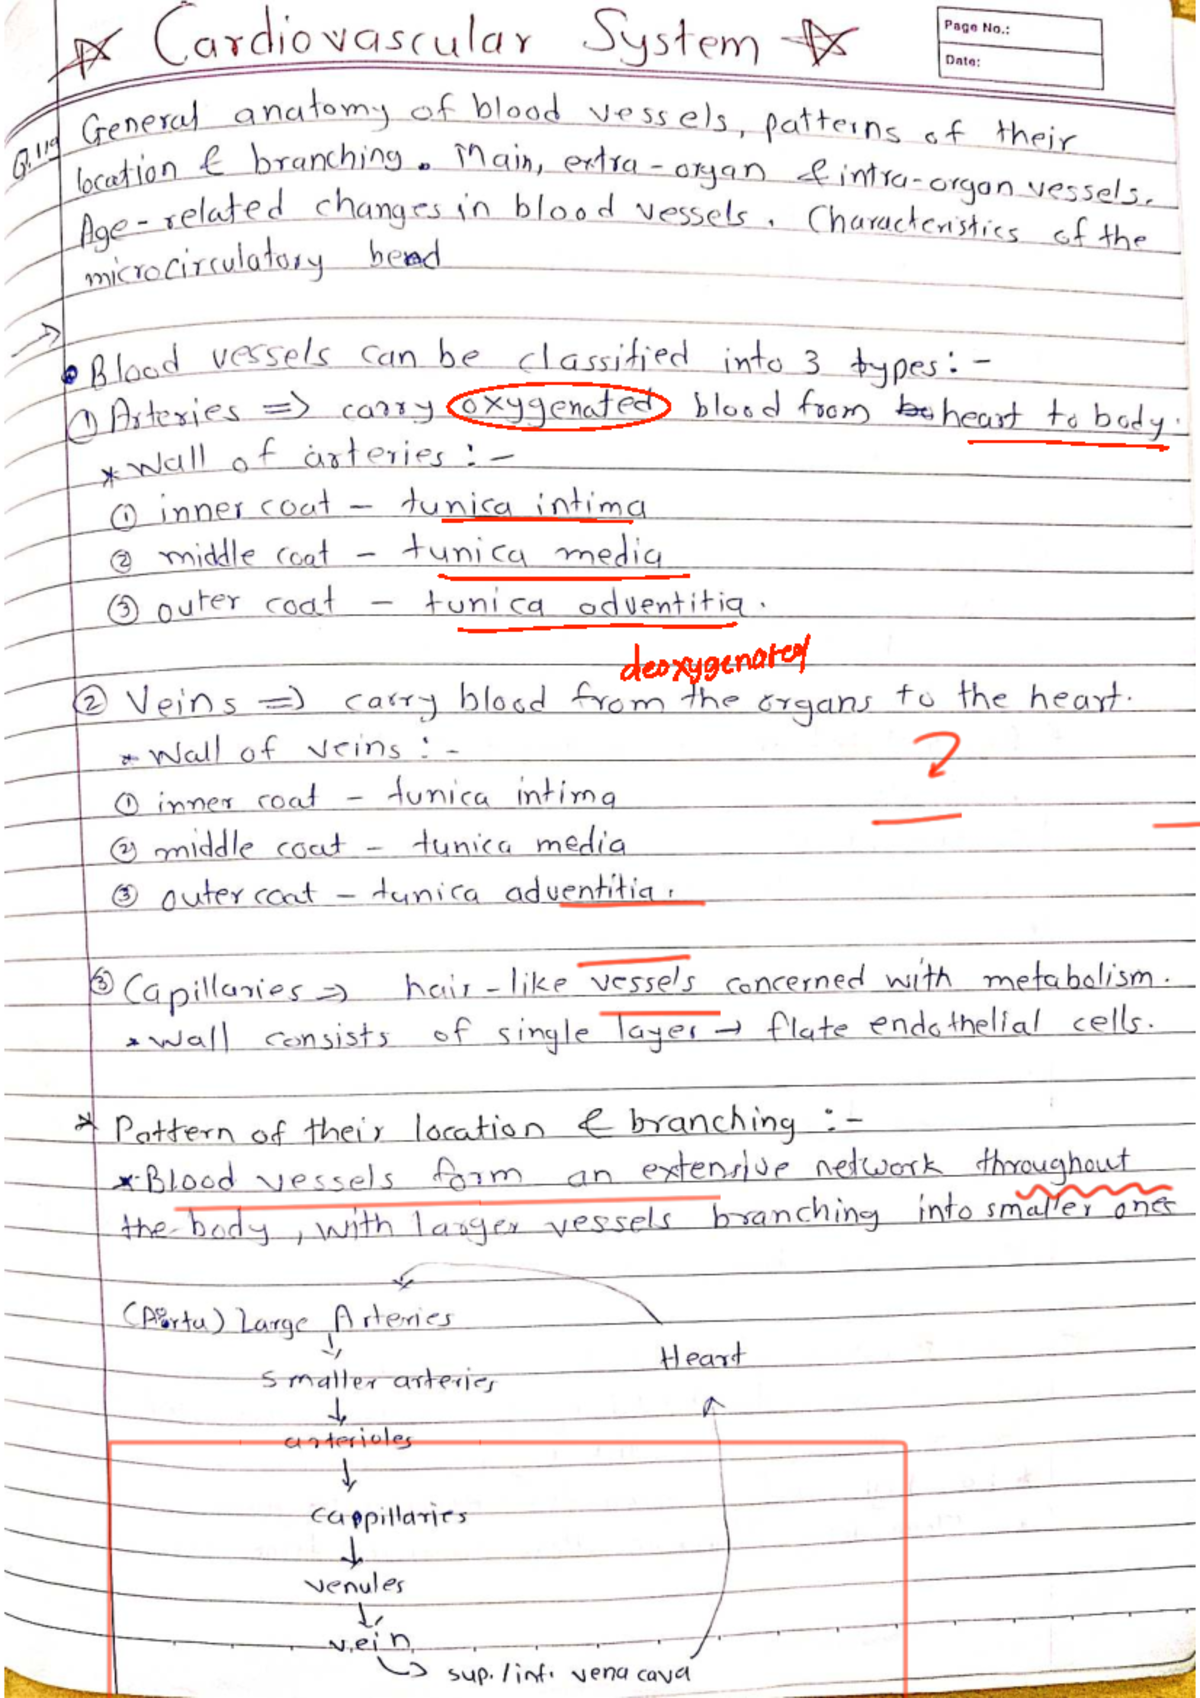 Cardiovascular System
Page No.:
Date:
Q.119 General anatomy of blood vessels, patterns of their
location & branching. Main, extra-organ & intra-organ vessels.
Age-related changes in blood vessels. Characteristics of the
microcirculatory bed
• Blood vessels can be classified into 3 types:-
① Arteries => carry oxygenated blood from heart to body.
* Wall of arteries :-
① inner coat - tunica intima
② middle coat - tunica media
③ outer coat - tunica adventitia.
deoxygenated
② Veins => carry blood from the organs to the heart.
* Wall of veins :-
① inner coat - tunica intima
② middle coat - tunica media
③ outer coat - tunica adventitia.
③ Capillaries => hair-like vessels concerned with metabolism.
* Wall consists of single layer → flate endothelial cells.
* Pattern of their location & branching :-
* Blood vessels form an extensive network throughout
the body, with larger vessels branching into smaller ones
(Aorta) Large Arteries
Heart
↓
Smaller arteries
↓
arterioles
↓
cappillaries
↓
venules
↓
vein
→ sup./inf. vena cava